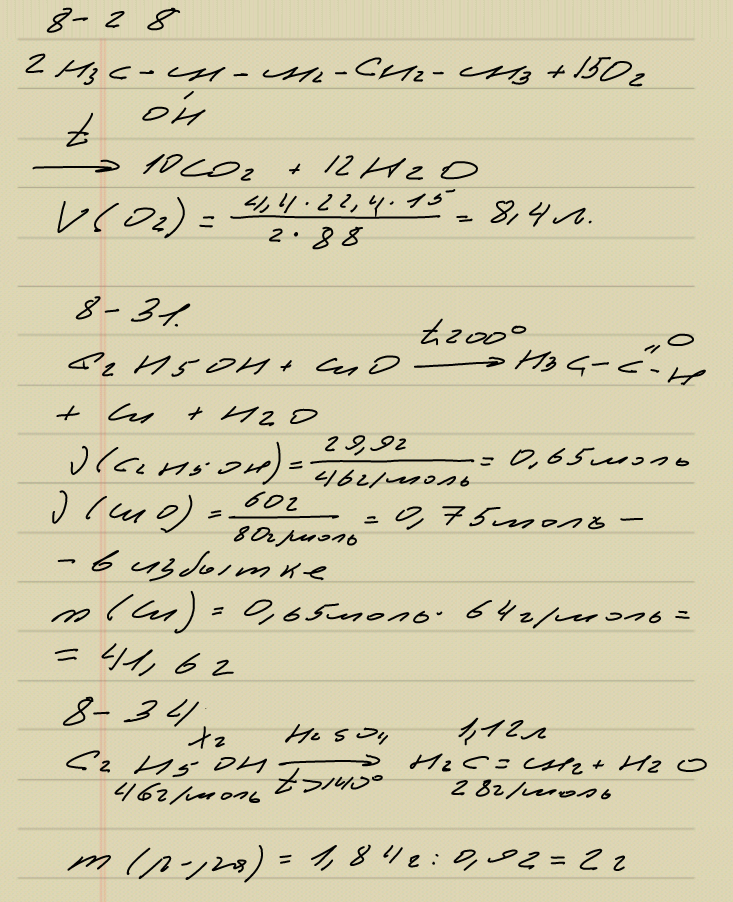 8-28
2H₃C-CH-CH₂-CH₂-CH₃+15O₂
OH
t → 10CO₂ + 12H₂O
V(O₂) = (4,4·22,4·15)/(2·88) = 8,4 л.
8-31.
C₂H₅OH + CuO t, 200° → H₃C-C=O-H
+ Cu + H₂O
ν(C₂H₅OH) = 29,9г/46г/моль = 0,65моль
ν(CuO) = 60г/80г/моль = 0,75моль -
- в избытке
m(Cu) = 0,65моль · 64г/моль =
= 41,6г
8-34
xг H₂SO₄ 1,12л
C₂H₅OH → H₂C=CH₂ + H₂O
46г/моль t>140° 28г/моль
m(р-ра) = 1,84г : 0,92 = 2г